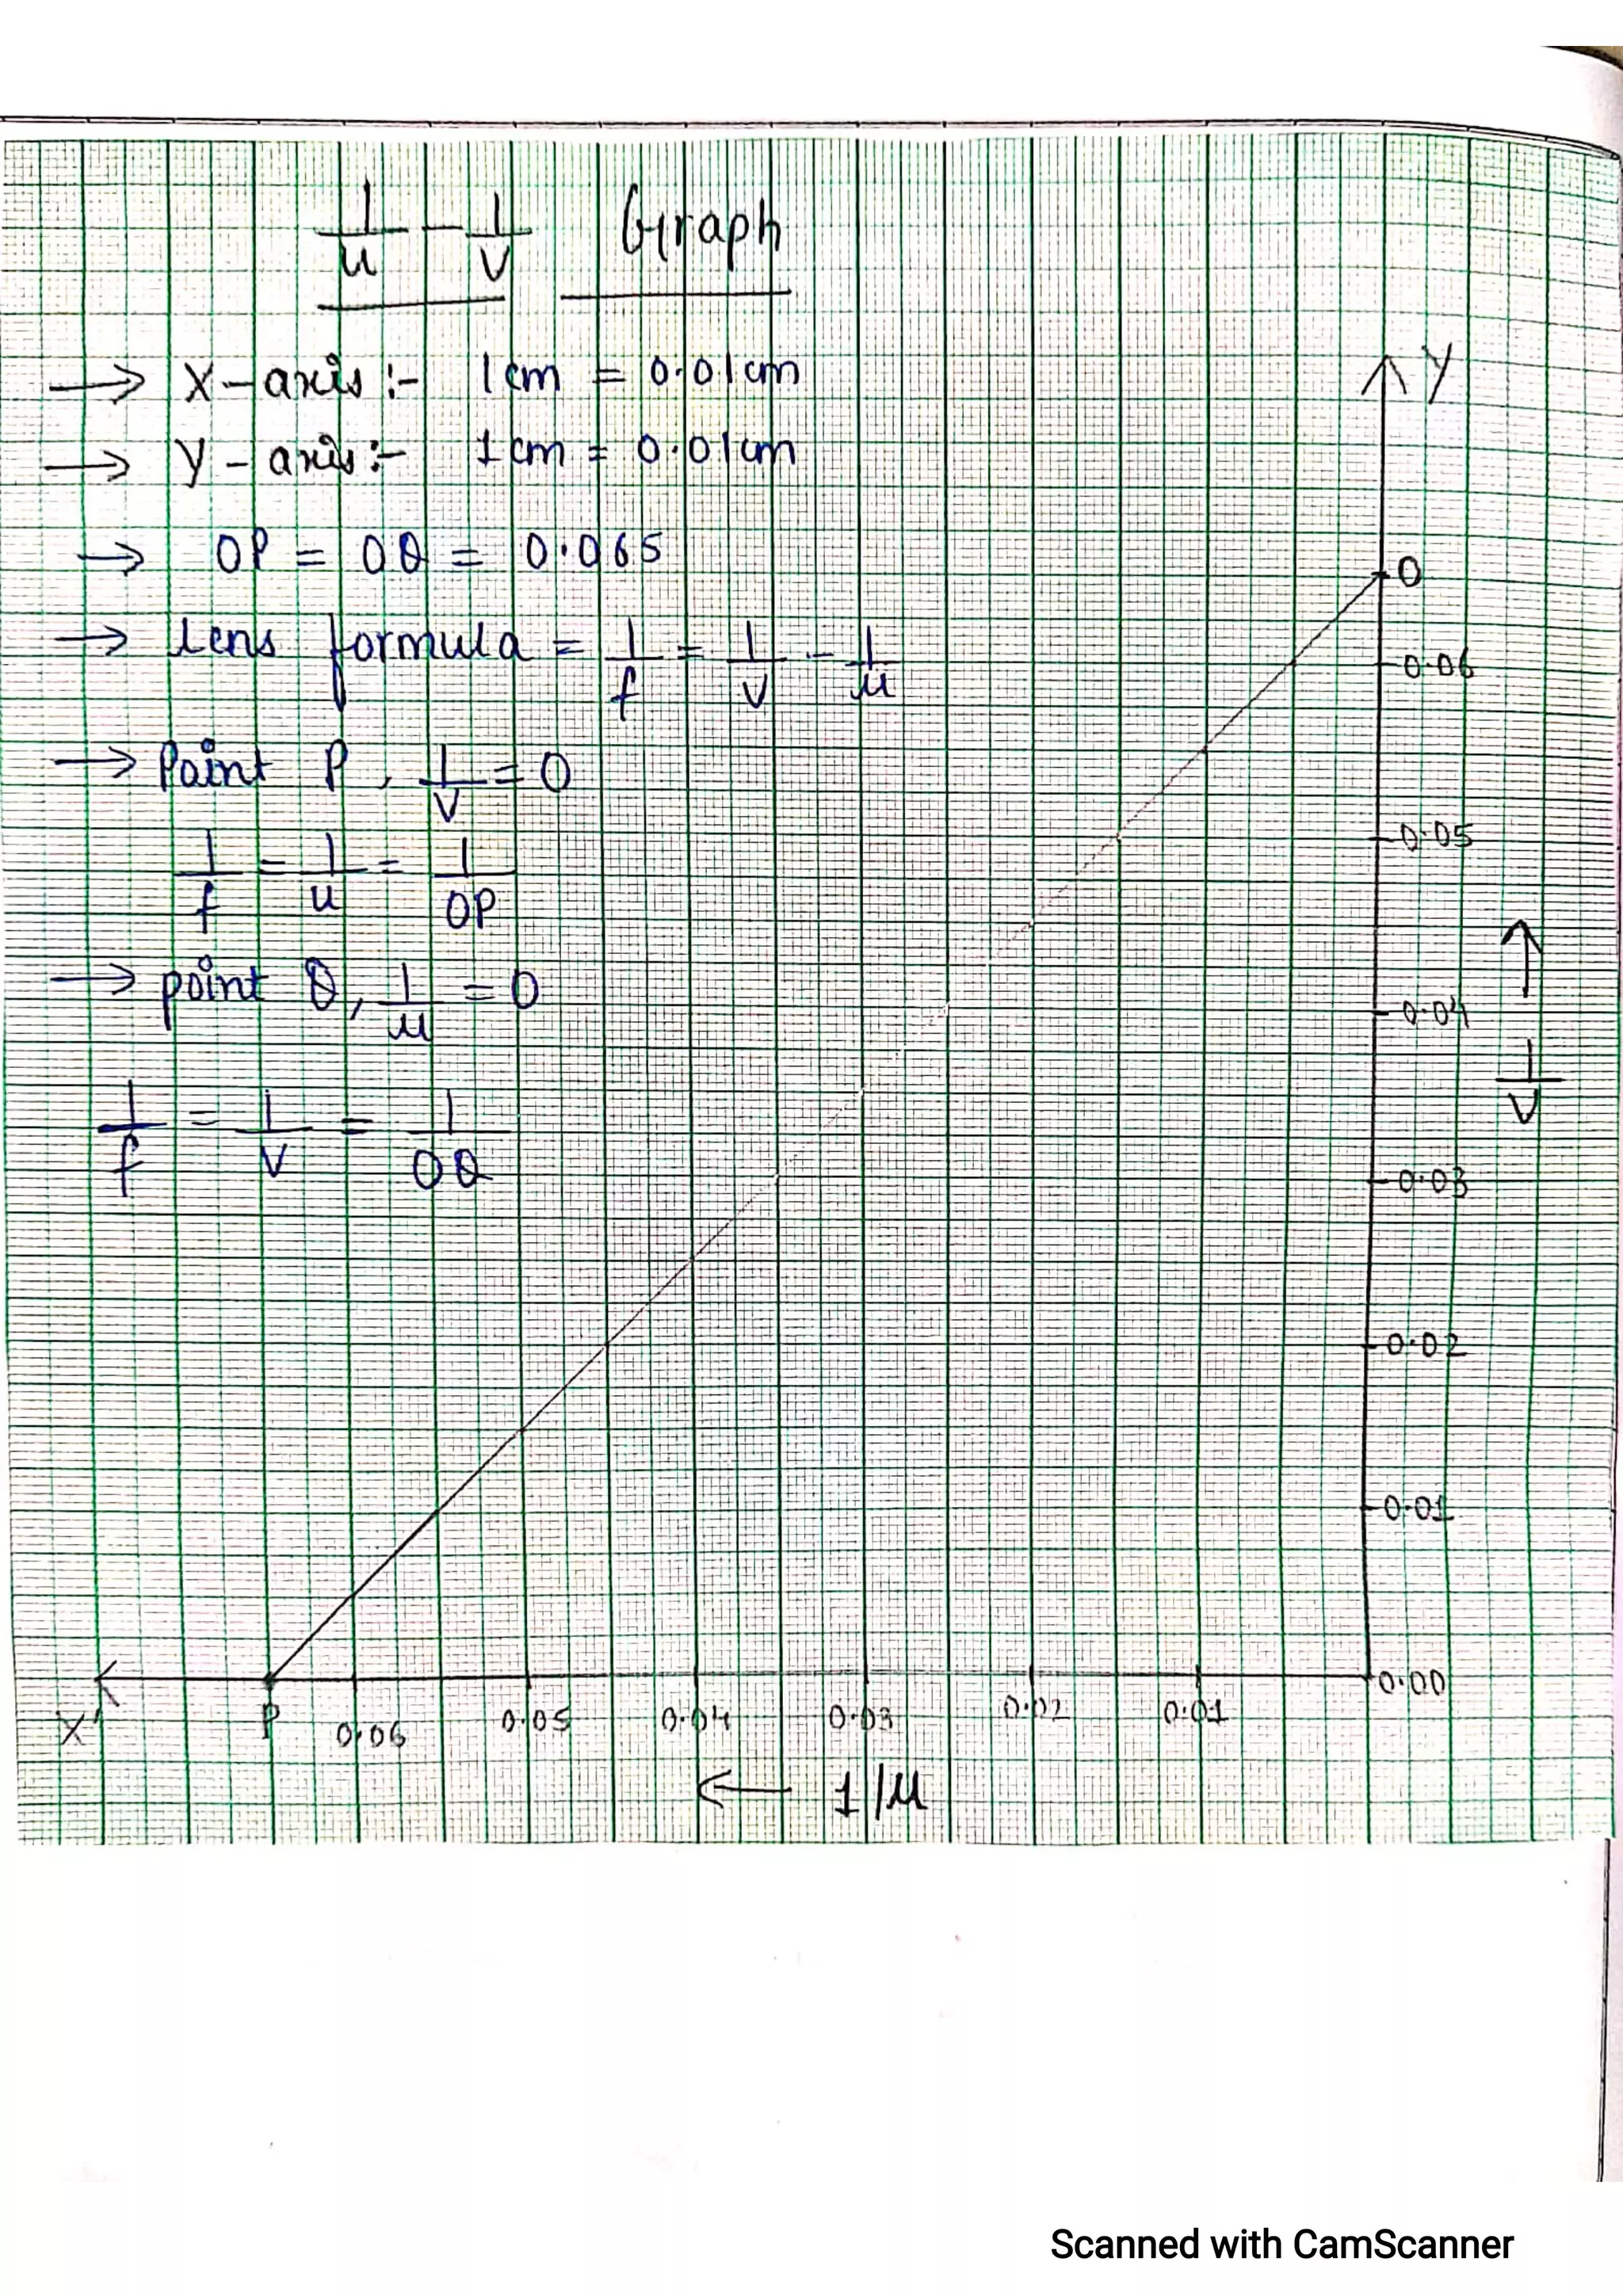 1/u - 1/v Graph
→ X-axis :- 1cm = 0.01cm
→ Y-axis :- 1cm = 0.01cm
→ OP = OQ = 0.065
→ lens formula = 1/f = 1/v - 1/u
→ Point P, 1/v = 0
1/f = 1/u = 1/OP
→ point Q, 1/u = 0
1/f = 1/v = 1/OQ
Y
O
0.06
0.05
0.04
0.03
0.02
0.01
0.00
↑
1/v
X' P 0.06 0.05 0.04 0.03 0.02 0.01
← 1/u
Scanned with CamScanner